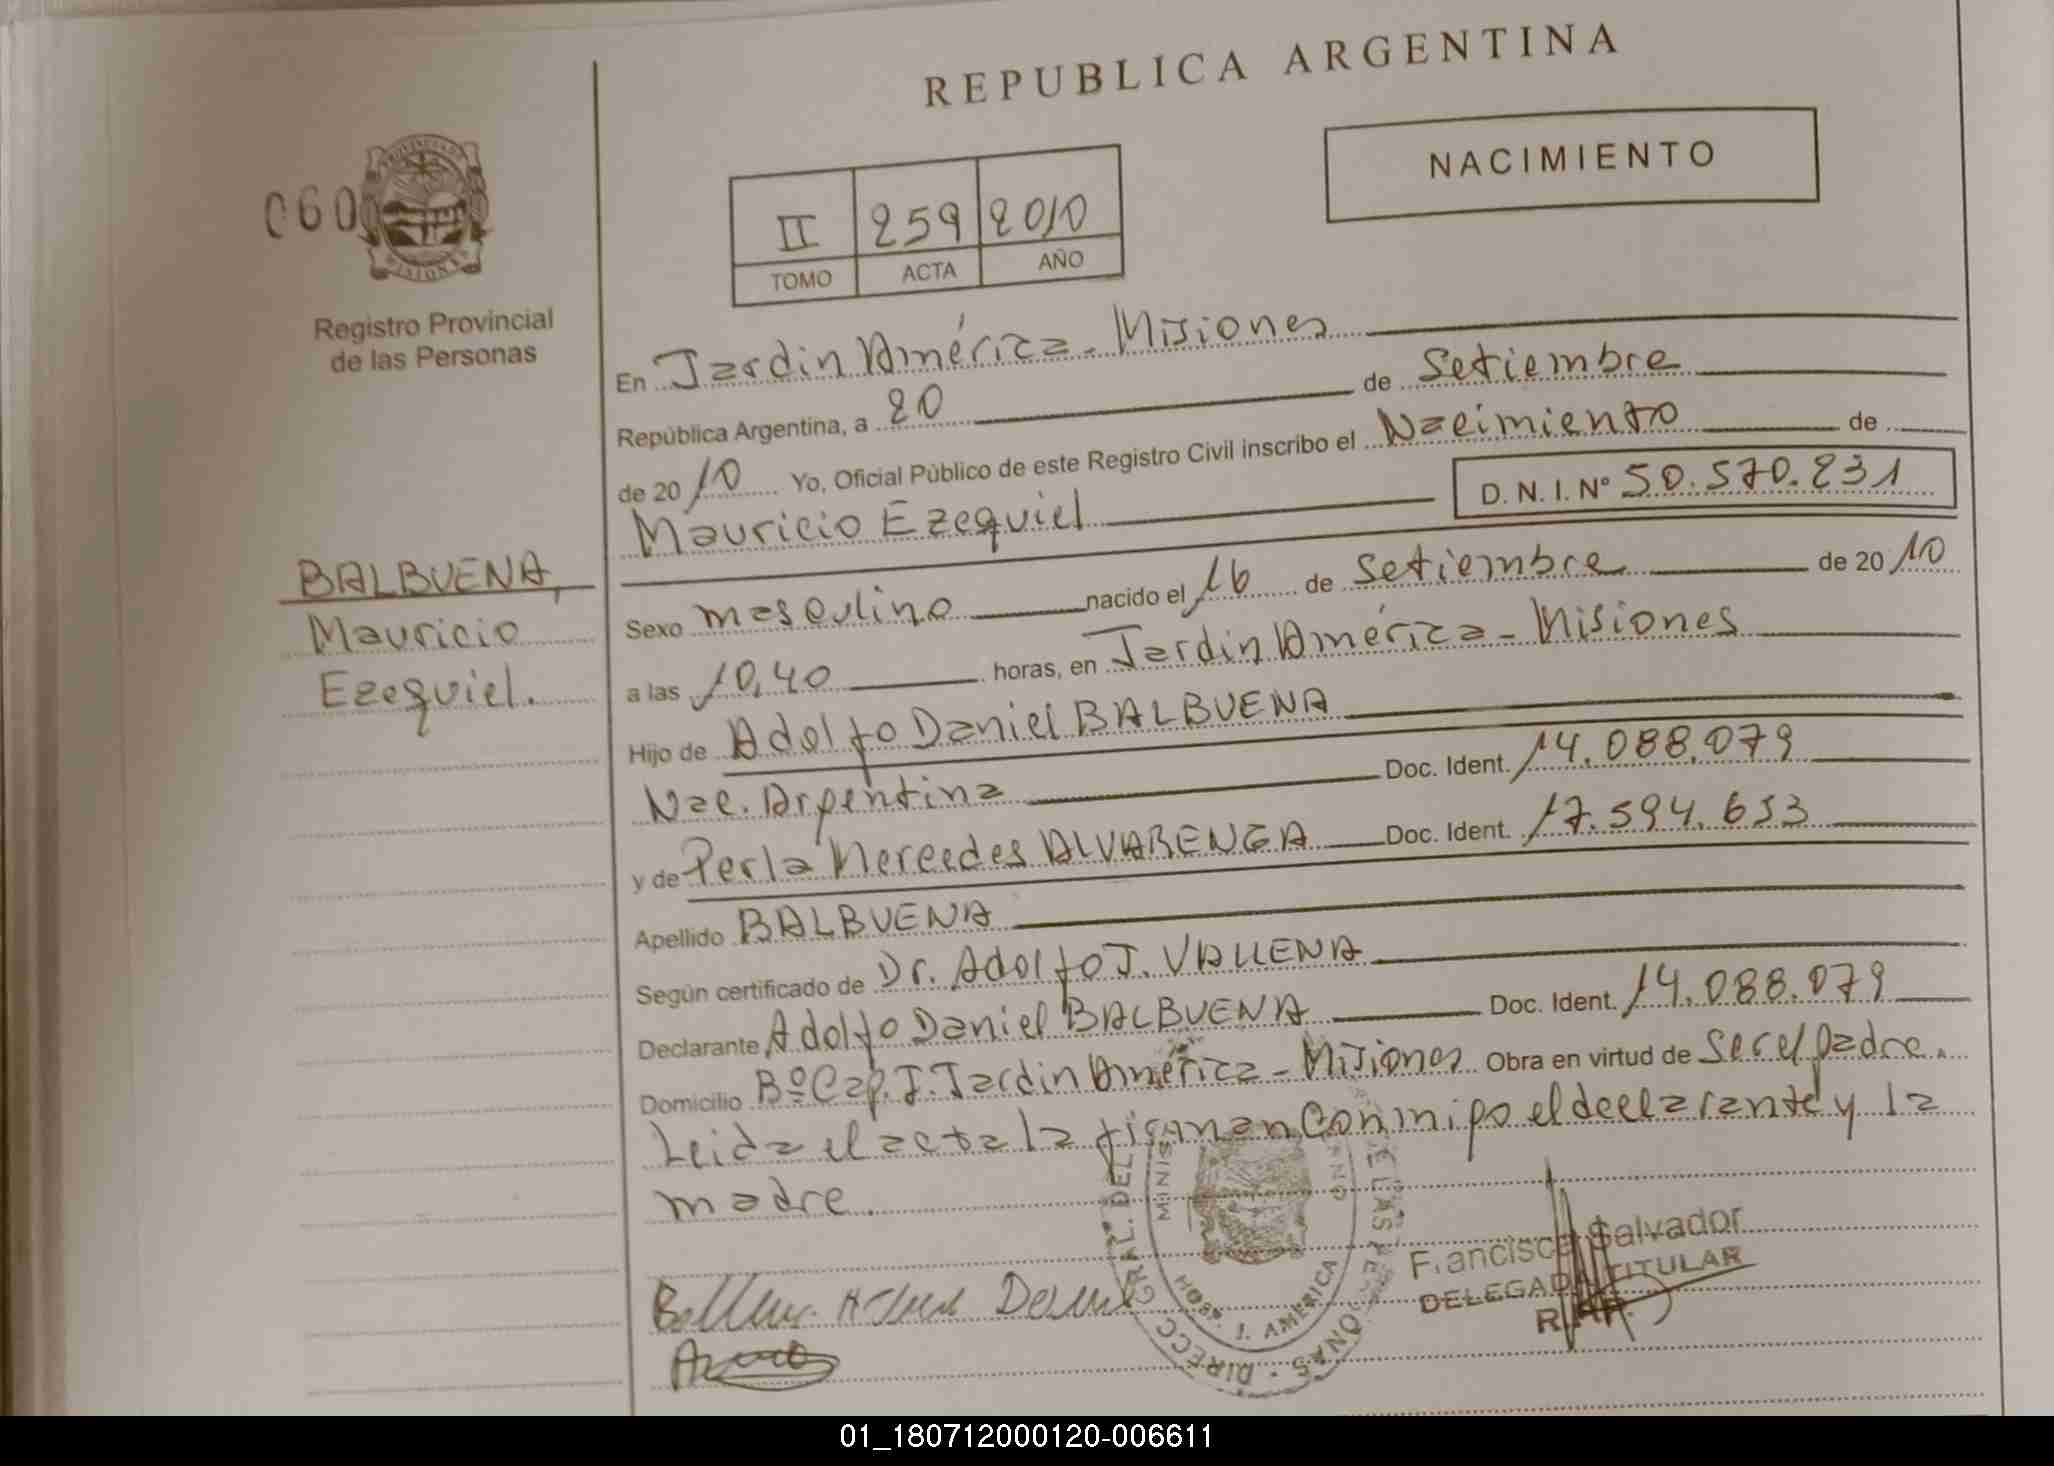 REPUBLICA ARGENTINA
NACIMIENTO
060
PROVINCIA DE
MISIONES
Registro Provincial
de las Personas
II 259 2010
TOMO ACTA AÑO
En Jardin América - Misiones
República Argentina, a 20 de Setiembre
de 2010 Yo, Oficial Público de este Registro Civil inscribo el Nacimiento de
Mauricio Ezequiel D. N. I. Nº 50.570.231
BALBUENA,
Mauricio
Ezequiel.
Sexo masculino nacido el 16 de Setiembre de 2010
a las 10,40 horas, en Jardin América - Misiones
Hijo de Adolfo Daniel BALBUENA
Nac. Argentina Doc. Ident. 14.088.079
y de Perla Mercedes ALVARENGA Doc. Ident. 17.594.653
Apellido BALBUENA
Según certificado de Dr. Adolfo J. VALLENA
Declarante Adolfo Daniel BALBUENA Doc. Ident. 14.088.079
Domicilio Bº Cap. J. Jardin América - Misiones Obra en virtud de Ser el padre.
Leida el acta la firman Conmigo el declarante y la
madre.
Francisca Salvador
DELEGADA TITULAR
01_180712000120-006611